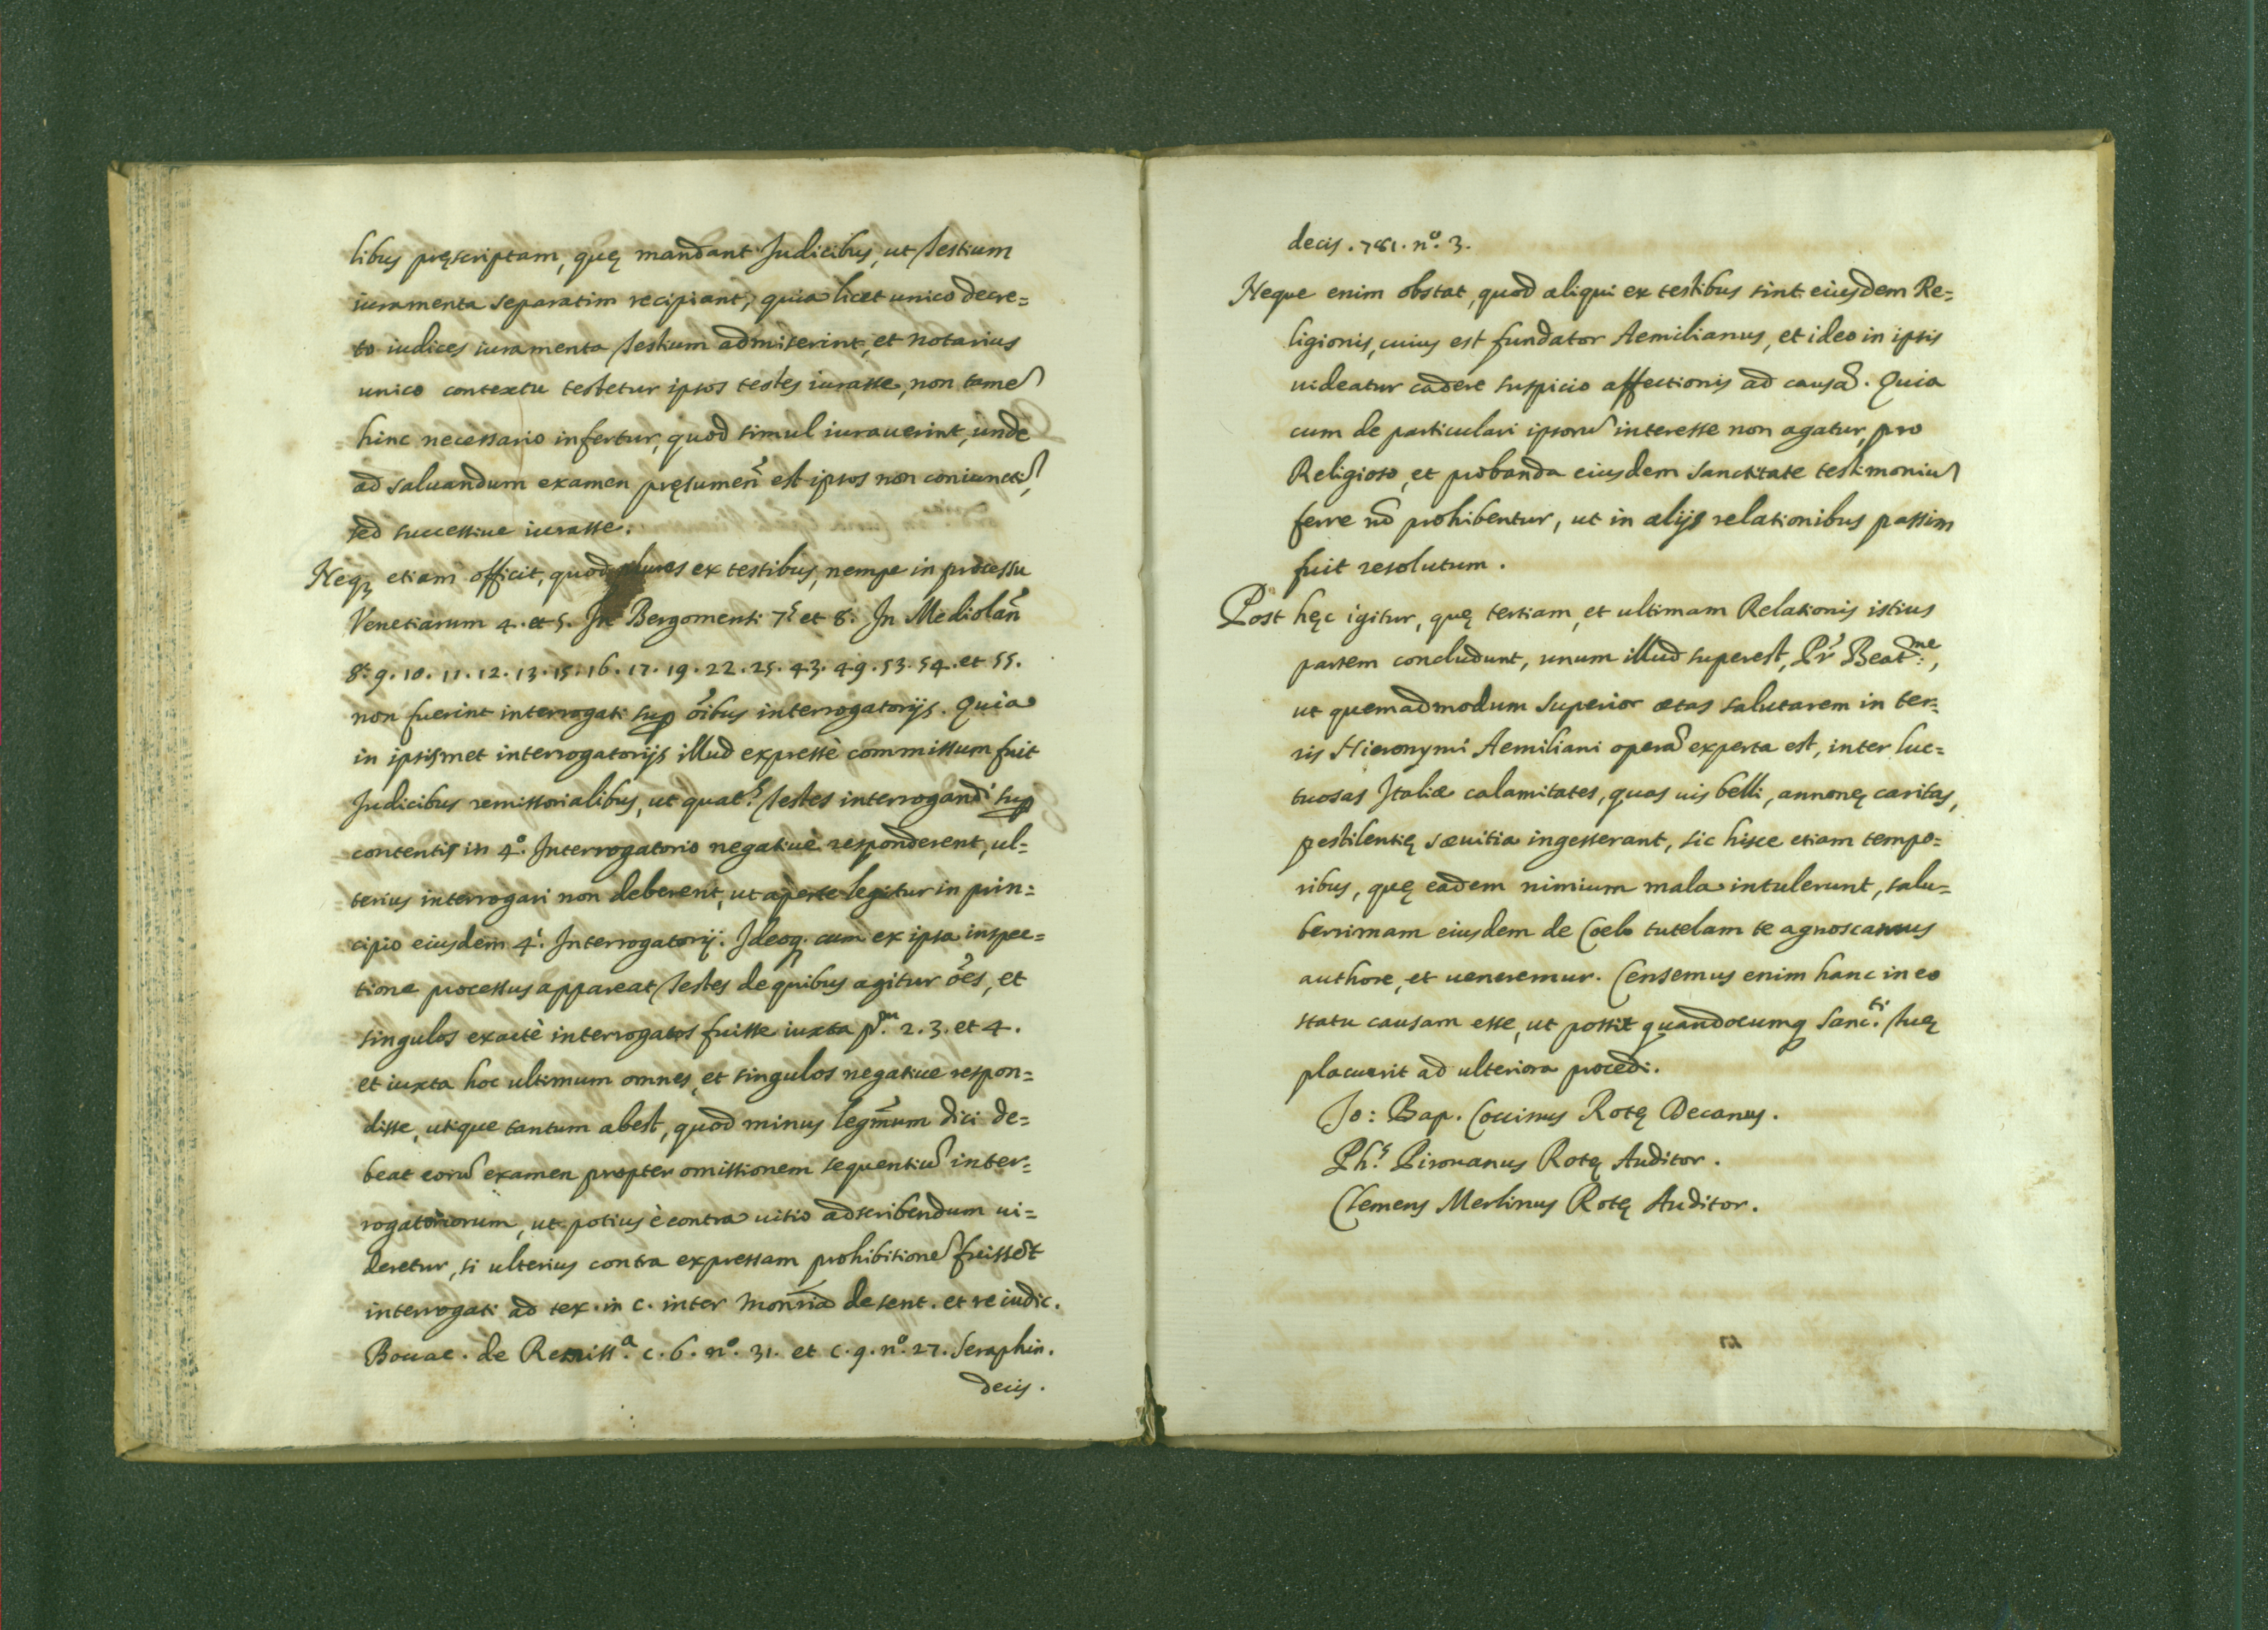 libus pręscriptam, quę mandant Judicibus, ut Testium
iuramenta separatim recipiant; quia licet unico decre=
to iudices iuramenta Testium admiserint, et notarius
unico contextu testetur ipsos testes iurasse, non tamē
hinc necessario infertur, quod simul iurauerint, unde
ad saluandum examen pręsumen̄ est ipsos non coniunctī,
sed successiue iurasse.
Neq; etiam officit, quod plures ex testibus, nempe in processu
Venetiarum 4. et 5. In Bergomensi 7.s et 8. In Mediolan̄
8. 9. 10. 11. 12. 13. 15. 16. 17. 19. 22. 25. 43. 49. 53. 54. et 55.
non fuerint interrogati sup̱ ōibus interrogatorijs. Quia
in ipsismet interrogatorijs illud expressè commissum fuit
Judicibus remissorialibus, ut quat.s Testes interrogandi sup̱
contentis in 4.º Interrogatorio negatiuè responderent, ul=
terius interrogari non deberent, ut apertè legitur in prin=
cipio eiusdem 4.i Interrogatorij. Ideoq; cum ex ipsa inspec=
tione processus appareat Testes de quibus agitur ōes, et
singulos exactè interrogatos fuisse iuxta p.m 2. 3. et 4.
et iuxta hoc ultimum omnes, et singulos negatiue respon=
disse, utique tantum abest, quod minus legm̄um dici de=
beat eorū examen propter omissionem sequentiū inter=
rogatoriorum, ut potius è contra uitio adscribendum ui=
deretur, si ulterius contra expressam prohibitionē fuissēt
interrogati ad tex. in c. inter Monrīa de sent. et re iudic.
Bouac. de Remiss.a c. 6. nº. 31. et c. 9. nº. 27. Seraphin.
decis.
decis. 781. nº. 3.
Neque enim obstat, quod aliqui ex testibus sint eiusdem Re=
ligionis, cuius est fundator Aemilianus, et ideo in ipsis
uideatur cadere suspicio affectionis ad causā. Quia
cum de particulari ipsorū interesse non agatur, pro
Religioso, et probanda eiusdem sanctitate testimoniū
ferre nō prohibentur, ut in alijs relationibus passim
fuit resolutum.
Post hęc igitur, quę tertiam, et ultimam Relationis istius
partem concludunt, unum illud superest, Pr̄ Beat.me,
ut quemadmodum superior ætas salutarem in ter=
ris Hieronymi Aemiliani operā experta est, inter luc=
tuosas Italiæ calamitates, quas uis belli, annonę caritas,
pestilentię sæuitia ingesserant, sic hisce etiam tempo=
ribus, quę eadem nimium mala intulerunt, salu=
berrimam eiusdem de Coelo tutelam te agnoscamus
authore, et ueneremur. Censemus enim hanc in eo
statu causam esse, ut possit quandocumq; Sanc.ti Tuę
placuerit ad ulteriora procedi.
Jo: Bap. Coccinus Rotę Decanus.
Ph.s Pirouanus Rotę Auditor.
Clemens Merlinus Rotę Auditor.